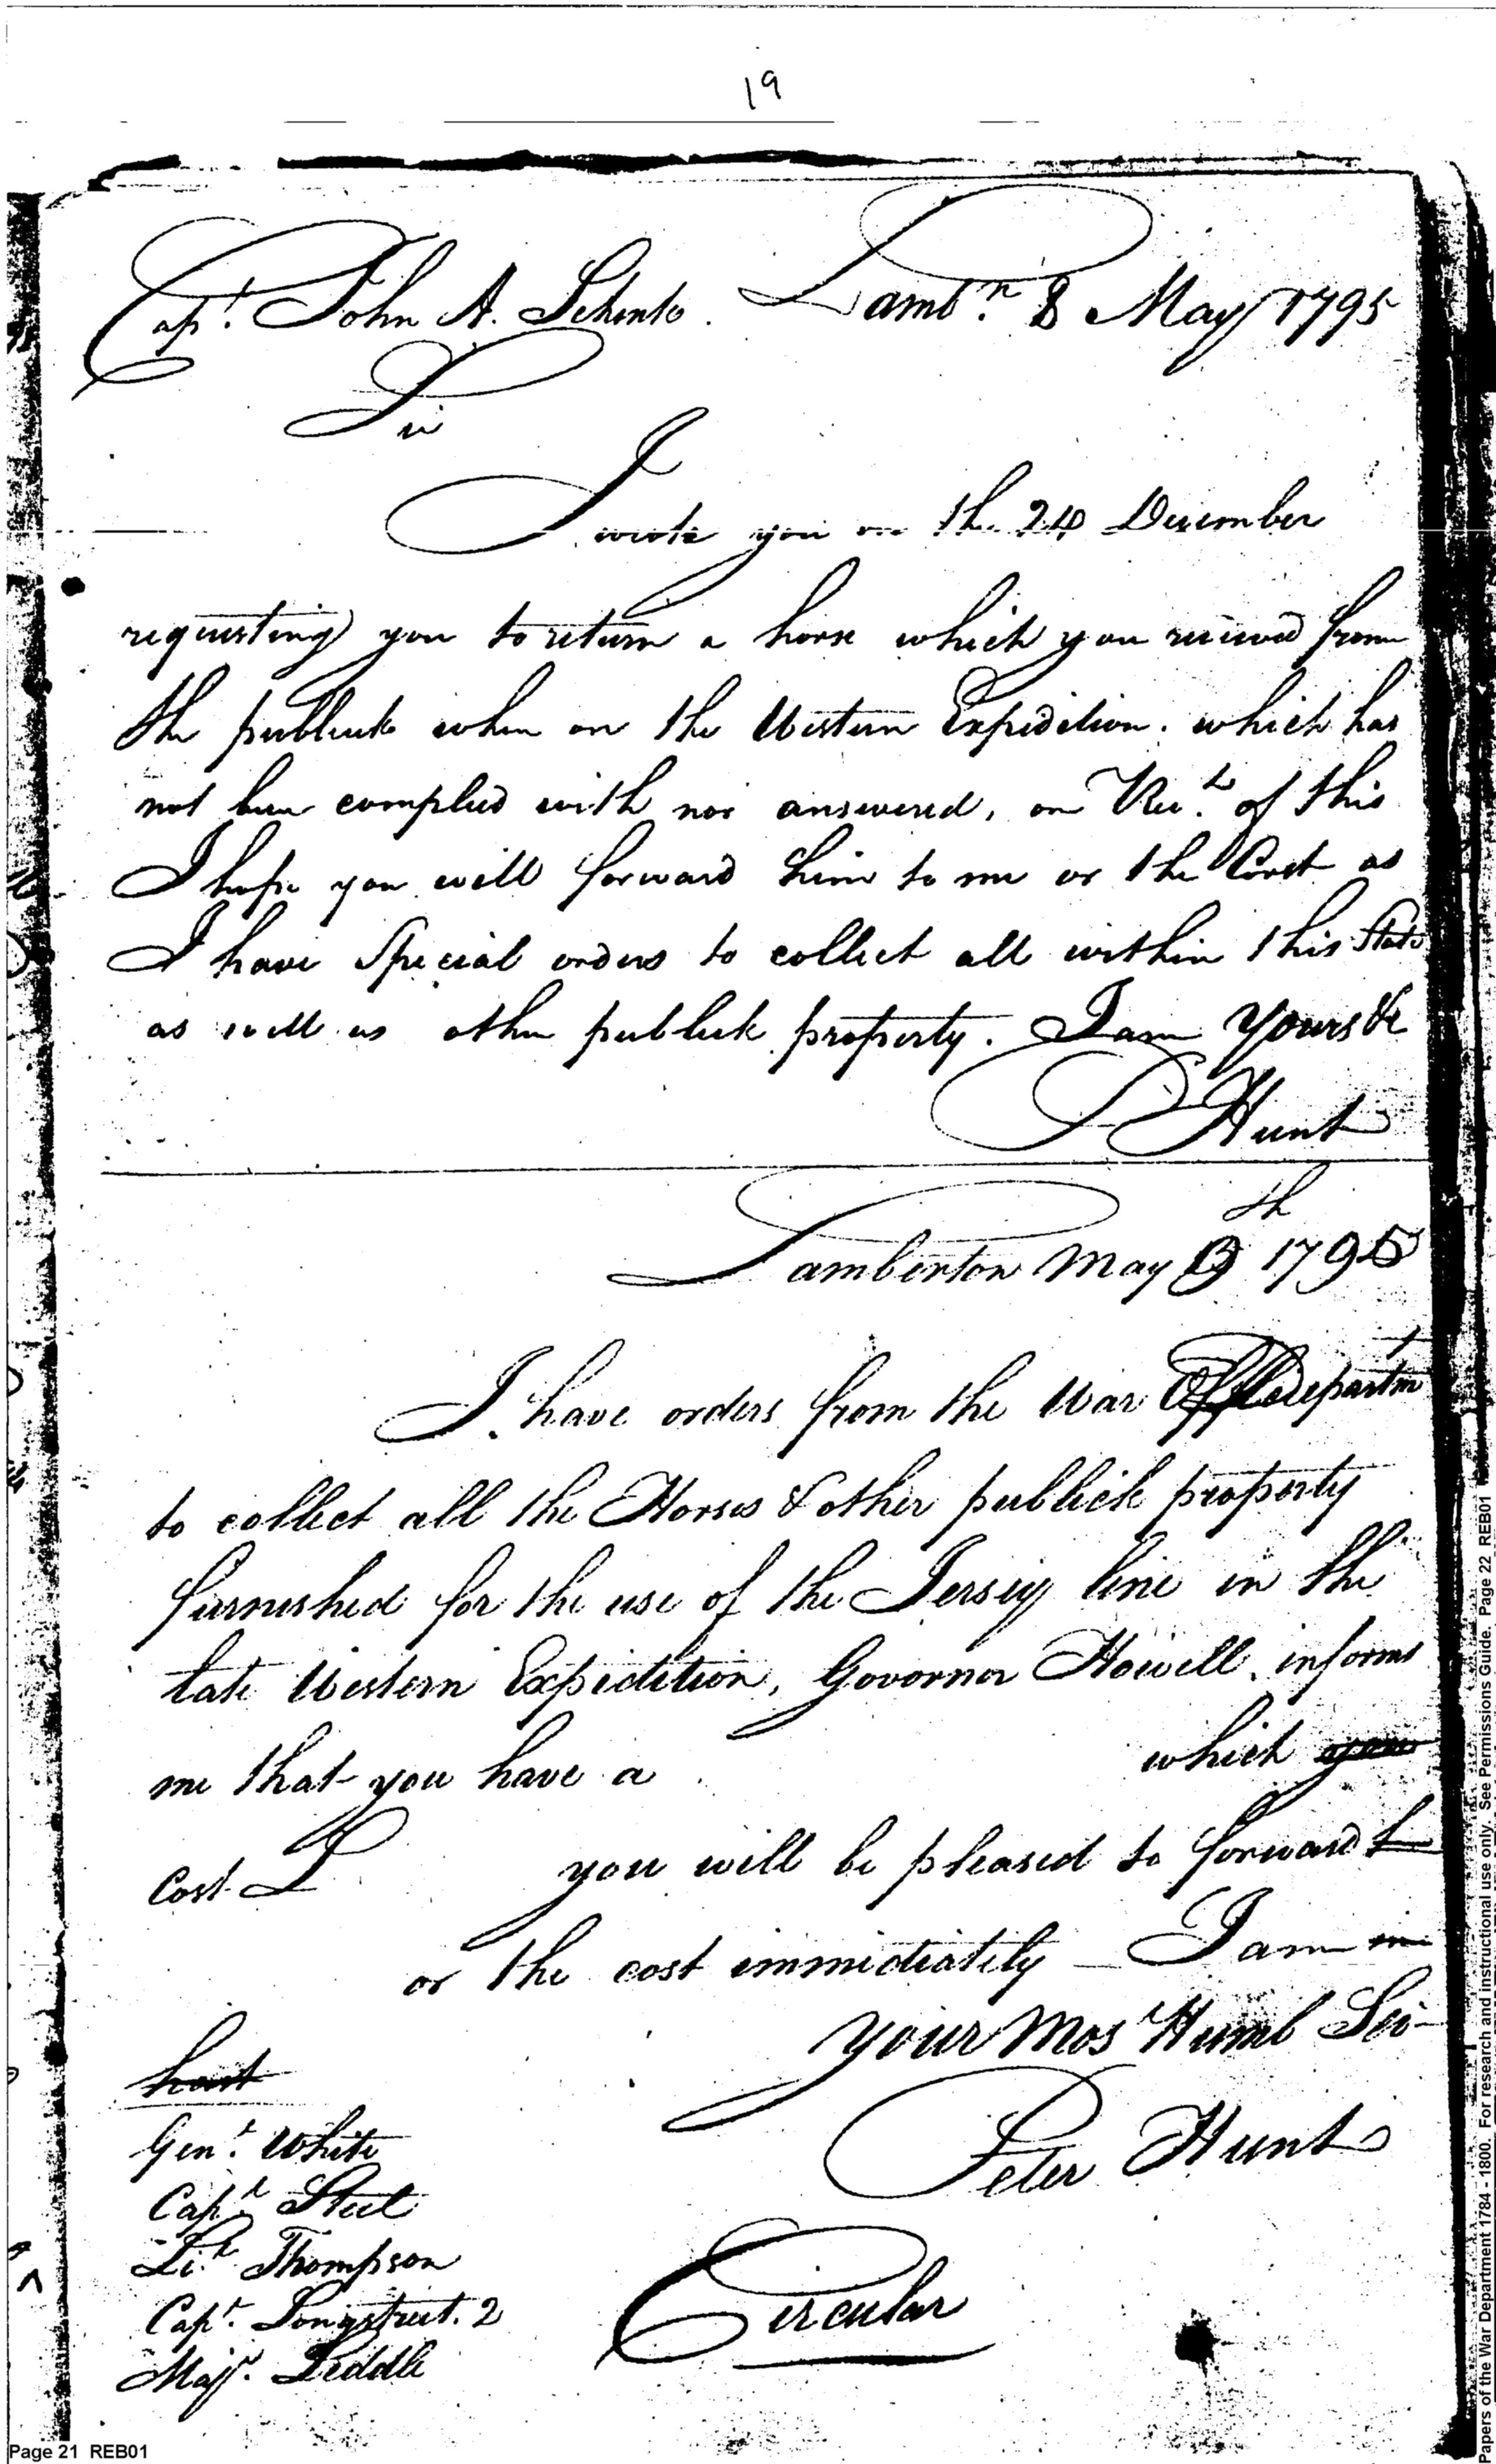 19
Capt. John A. Schenk. Lambn. 8 May 1795
Sir
I wrote you on the 24 December
requesting you to return a horse which you received from
the publick when on the Western Expedition. which has
not been complied with nor answered, on Rect. of this
I hope you will forward him to me or the Cost as
I have Special orders to collect all within this State
as well as other publick property. I am Yours &c
P Hunt
Lamberton May th 1795
I have orders from the War departm
to collect all the Horses & other publick property
furnished for the use of the Jersey line in the
late Western Expedition, Govornor Howell informs
me that you have a which you
Cost £ you will be pleased to forward
or the cost immediately I am
your Most Humb Ser
Peter Hunt
Genl. White
Capt. Steel
Lit. Thompson
Capt. Longstreet. 2
Majr. Leddle
Circular
Page 21 REB01
Papers of the War Department 1784 - 1800. For research and instructional use only. See Permissions Guide. Page 22 REB01